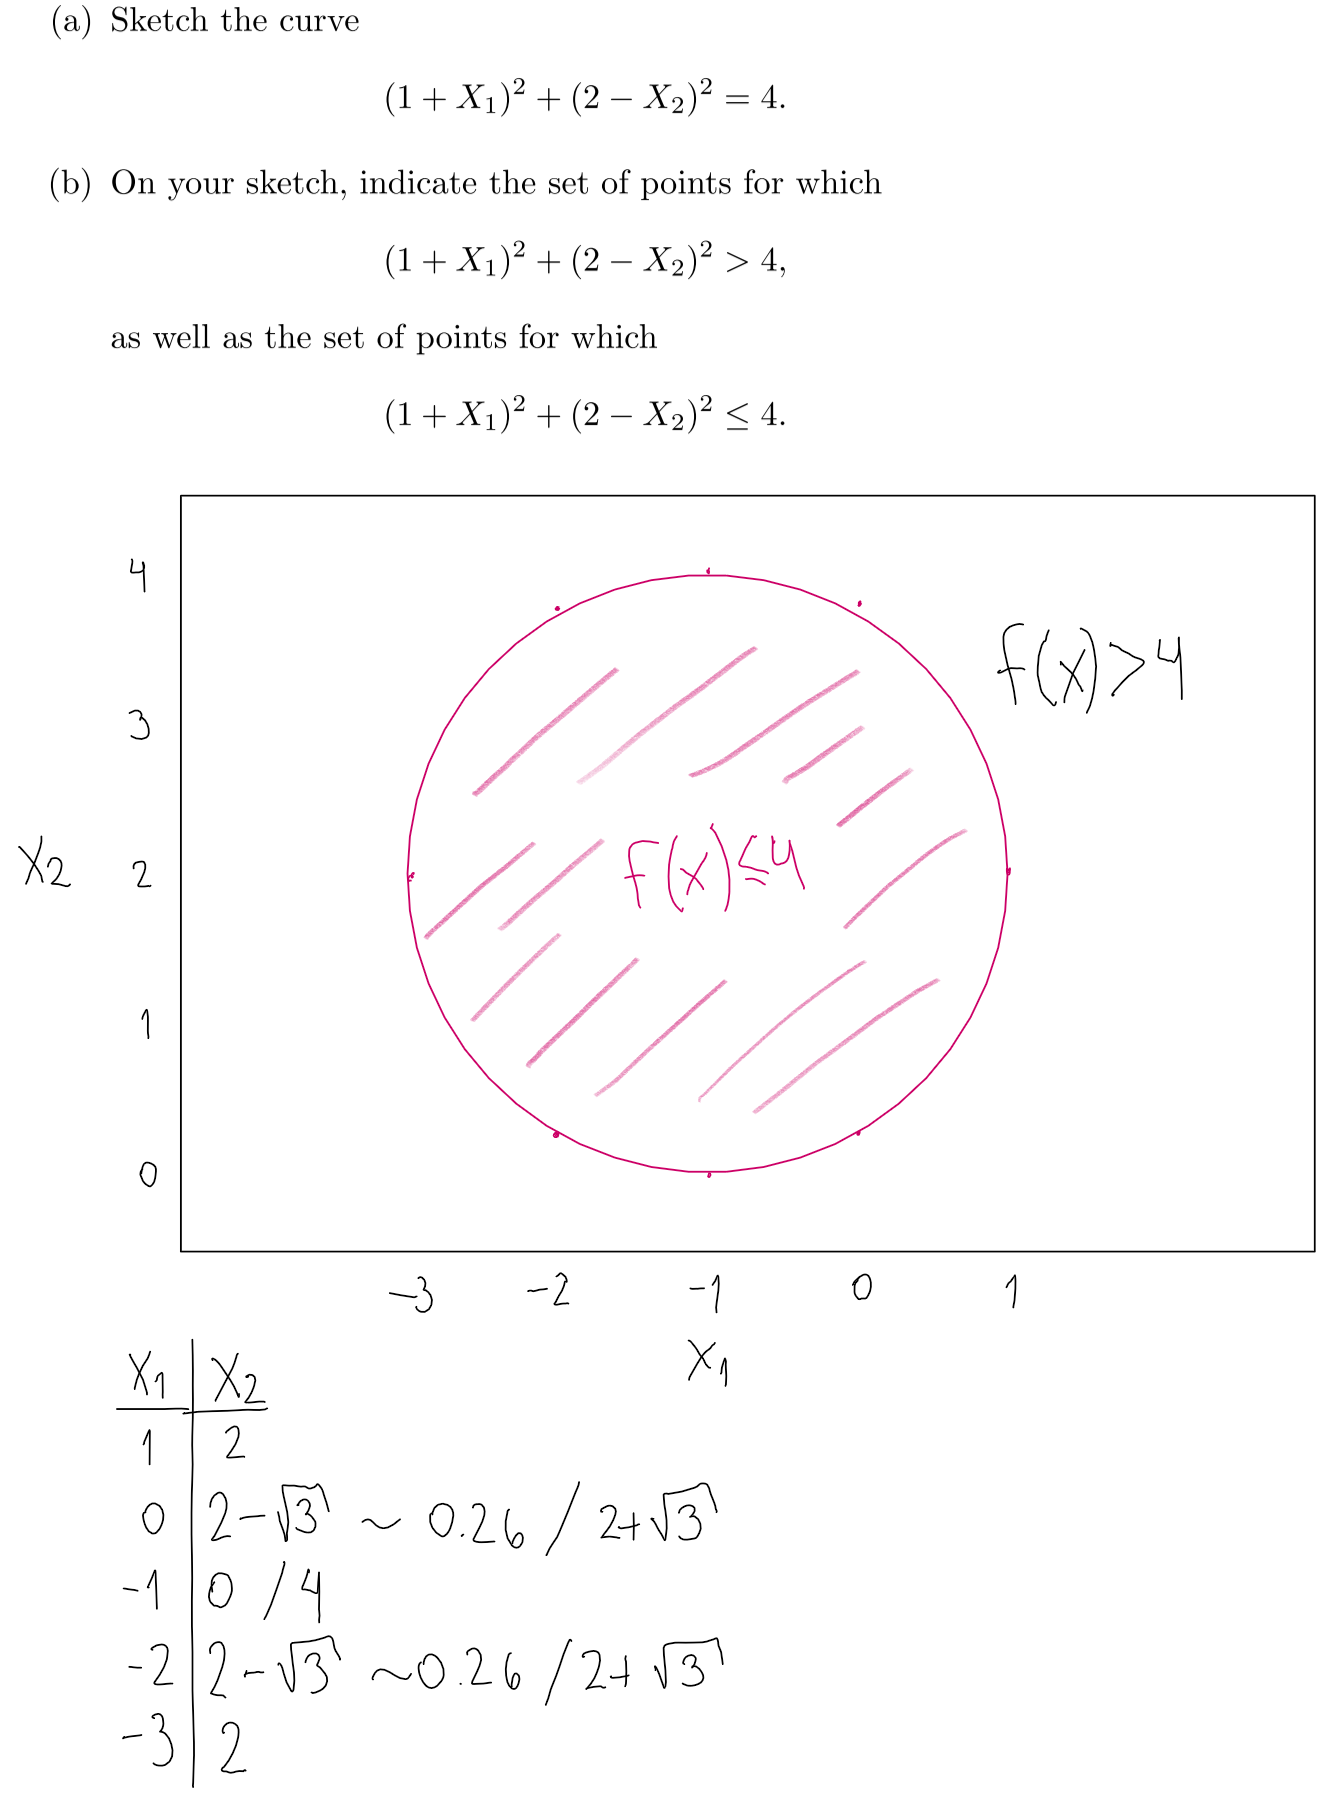 (a) Sketch the curve
(1 + X₁)² + (2 − X₂)² = 4.
(b) On your sketch, indicate the set of points for which
(1 + X₁)² + (2 − X₂)² > 4,
as well as the set of points for which
(1 + X₁)² + (2 − X₂)² ≤ 4.
4
f(x)>4
3
X2
2
f(x)≤4
1
0
-3 -2 -1 0 1
X1
X1 X2
1 2
0 2-√3 ~ 0.26 / 2+√3
-1 0 / 4
-2 2-√3 ~0.26 / 2+√3
-3 2